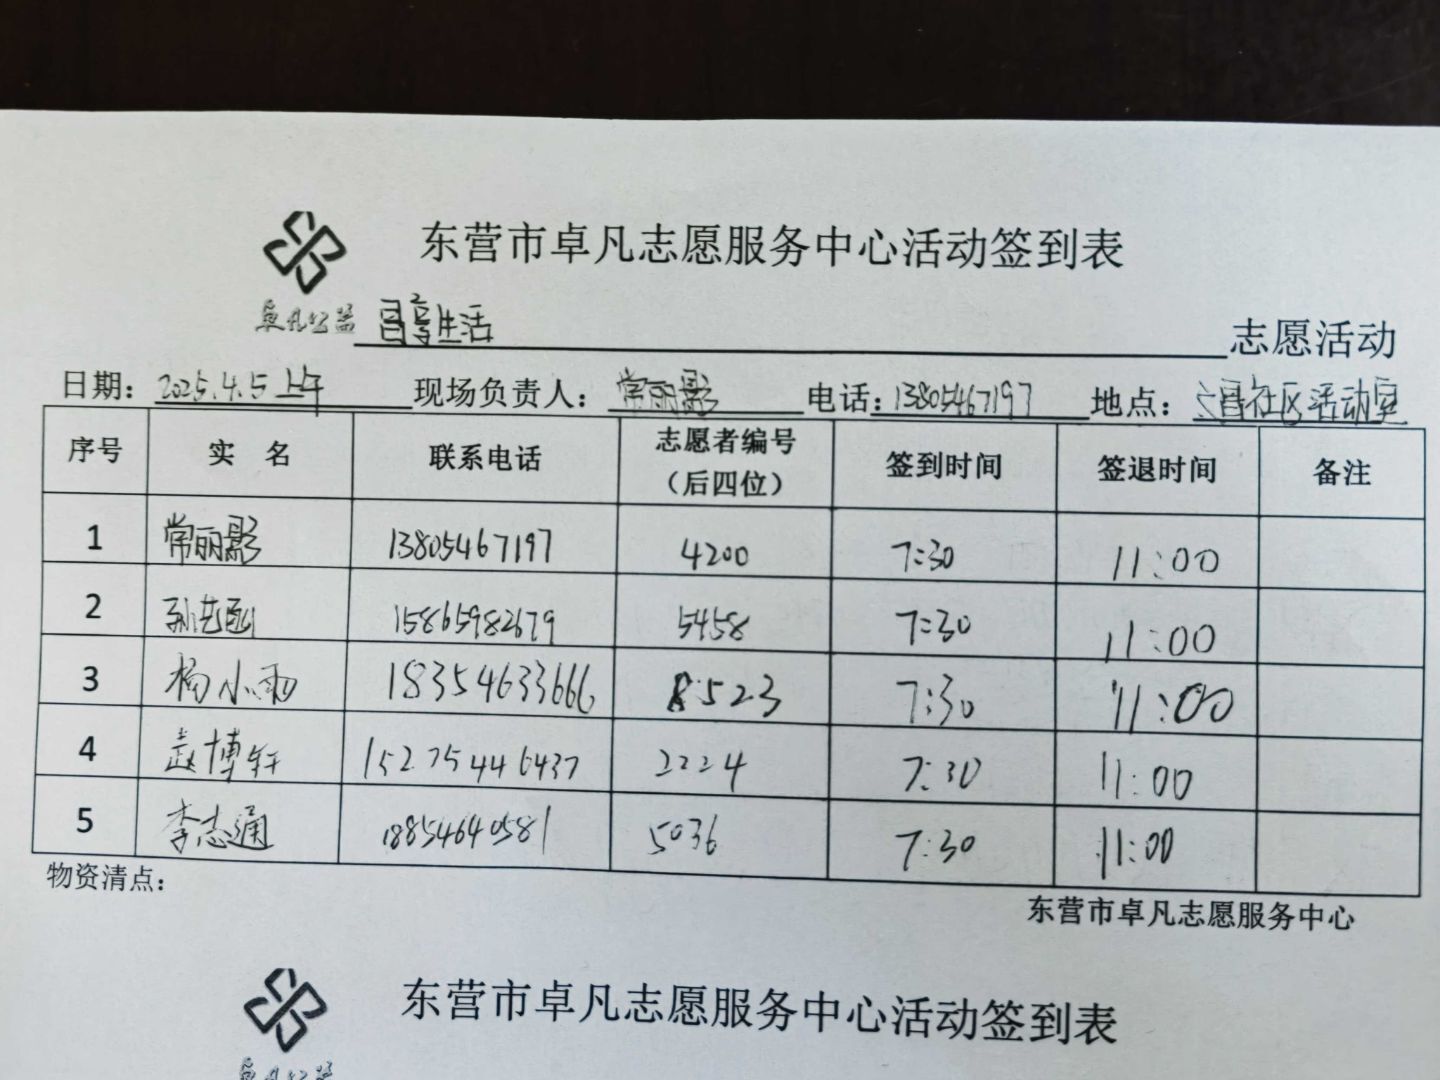 东营市卓凡志愿服务中心活动签到表
卓凡公益 生活 志愿活动
日期：2025.4.5上午 现场负责人：常丽影 电话：13805467197 地点：文昌社区活动室
序号 实 名 联系电话 志愿者编号（后四位） 签到时间 签退时间 备注
1 常丽影 13805467197 4200 7:30 11:00
2 孙艺函 15865982679 5458 7:30 11:00
3 杨小雨 18354633666 8523 7:30 11:00
4 赵博轩 15275446437 2224 7:30 11:00
5 李志通 18854640581 5036 7:30 11:00
物资清点：
东营市卓凡志愿服务中心
东营市卓凡志愿服务中心活动签到表
卓凡公益